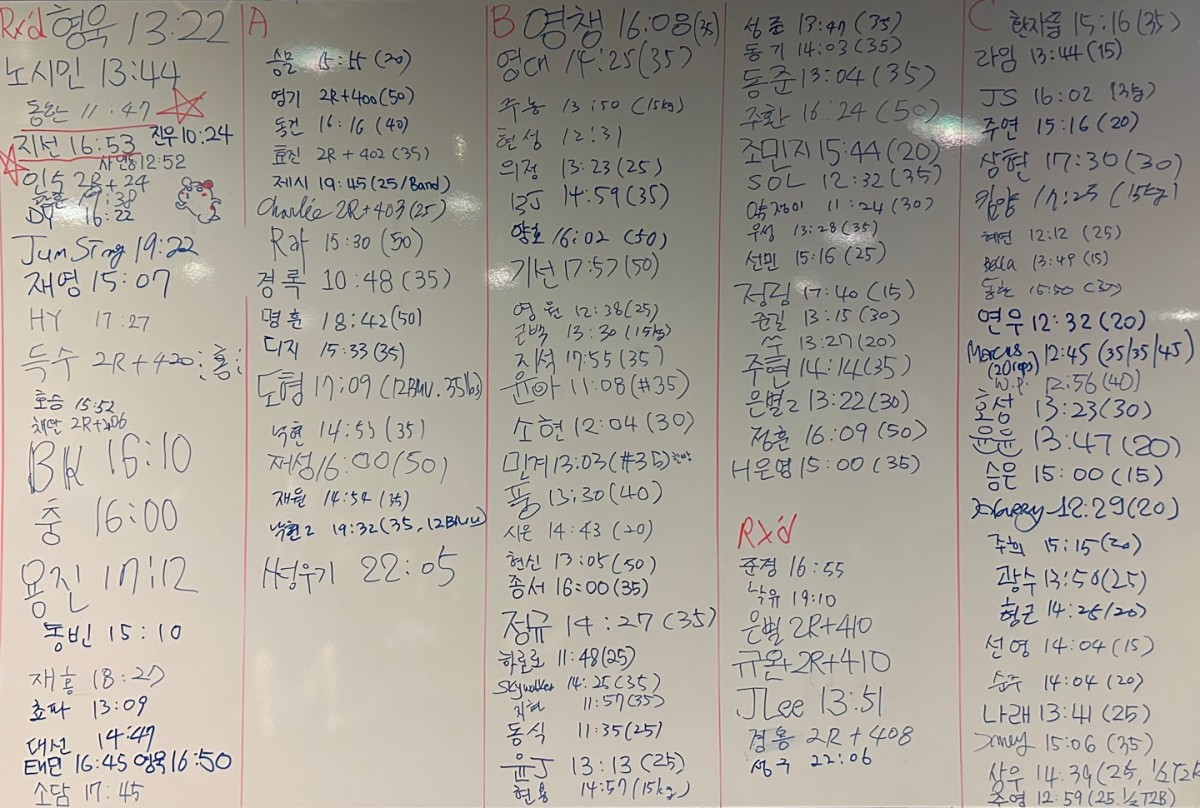 Rx'd 형욱 13:22
노시민 13:44
동환 11:47
지선 16:53 진우 10:24
12:52
인숙 2R+24
19:38
DY 16:22
JumSTing 19:22
재영 15:07
HY 17:27
득수 2R+420
호승 15:52
채만 2R+406
BK 16:10
충 16:00
용진 17:12
동빈 15:10
재홍 18:27
쵸파 13:09
대선 14:47
태민 16:45 영욱 16:50
소담 17:45
A
15:55 (20)
영기 2R+400(50)
동건 16:16 (40)
효진 2R+402(35)
제시 19:45(25/Band)
Charlie 2R+403(25)
Rah 15:30 (50)
경록 10:48(35)
명훈 18:42(50)
디지 15:33(35)
도형 17:09
낙현 14:53 (35)
재성 16:00(50)
재원 14:54 (35)
낙현2 19:32(35,
H성우기 22:05
B 영챙 16:08(35)
영대 14:25(35)
주농 13:50 (15kg)
현성 12:31
의정 13:23(25)
BJ 14:59(35)
양호 16:02 (50)
기선 17:57(50)
영원 12:38(25)
근백 13:30(15kg)
지석 17:55(35)
윤아 11:08(#35)
소현 12:04(30)
민겨 13:03(#35)
풍 13:30(40)
시온 14:43 (20)
현신 13:05(50)
종서 16:00(35)
정규 14:27(35)
하로로 11:48(25)
Skywalker 14:25(35)
지현 11:57(35)
동식 11:35(25)
윤J 13:13(25)
현용 14:57(15kg)
성준 13:47 (35)
동기 14:03(35)
동준 13:04(35)
주환 16:24(50)
조민지 15:44(20)
SOL 12:32(35)
약쟁이 11:24(30)
우성 13:28(35)
선민 15:16(25)
정림 17:40(15)
준길 13:15(30)
쑤 13:27(20)
주현 14:14(35)
은별2 13:22(30)
정훈 16:09(50)
H은영 15:00(35)
Rx'd
준경 16:55
낙유 19:10
은별 2R+410
규온 2R+410
JLee 13:51
경용 2R+408
성구 22:06
C 한지쫑 15:16(35)
라임 13:44(15)
JS 16:02
주연 15:16(20)
상현 17:30(30)
킴양 17:25(15kg)
혜연 12:12 (25)
Bella 13:49 (15)
동환 15:50 (30)
연우 12:32(20)
Marcus 12:45 (35/35/45)
(20reps)
W.P. 12:56(40)
호성 13:23(30)
윤윤 13:47(20)
승은 15:00(15)
12:29(20)
주희 15:15(20)
광수 13:50(25)
형근 14:25(20)
선영 14:04(15)
순주 14:04(20)
나래 13:41(25)
15:06(35)
상우 14:39(25, 1/2T2B
주영 12:59(25, 1/2T2B)